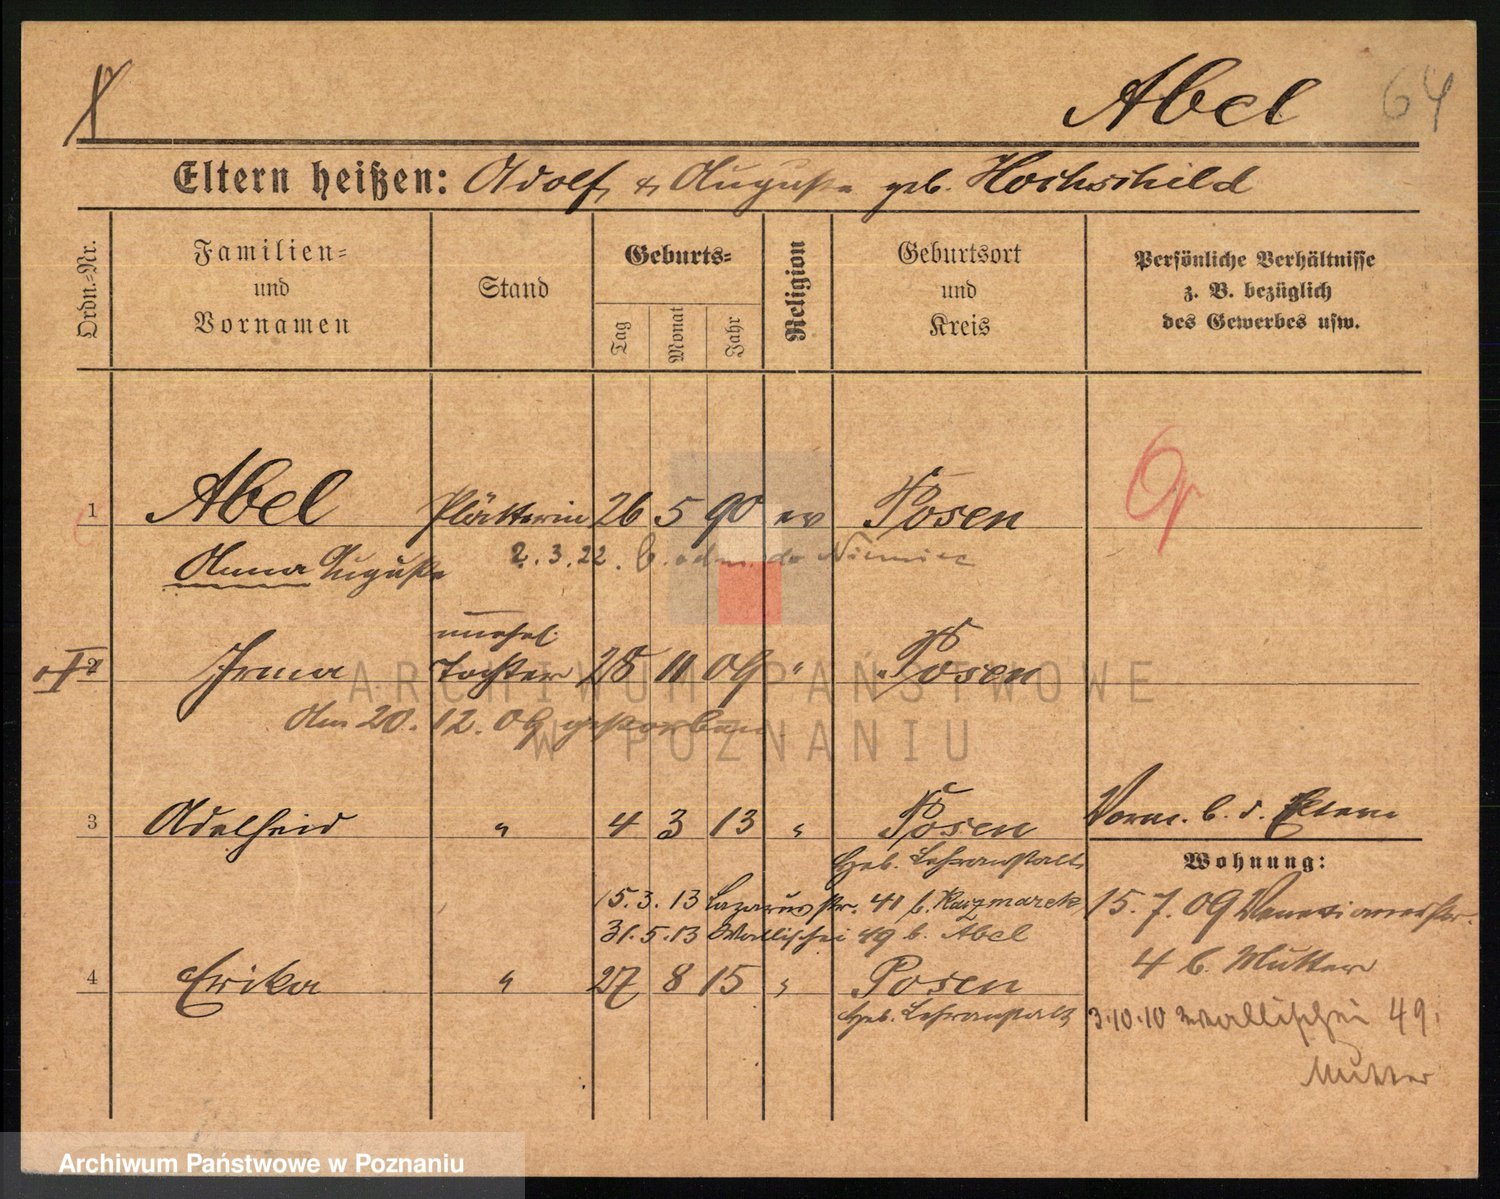 Abel 64
Eltern heißen: Adolf & Auguste geb. Hochschild
Ordn.-Nr.
Familien-
und
Vornamen
Stand
Geburts-
Tag
Monat
Jahr
Religion
Geburtsort
und
Kreis
Persönliche Verhältnisse
z. B. bezüglich
des Gewerbes usw.
1 Abel Plätterin 26 5 90 ev Posen
Anna Auguste 2.3.22. do Niemiec
unehel.
2 Irma Tochter 28 11 09 " Posen
Am 20.12.09 gestorben
3 Adelheid " 4 3 13 " Posen
Vorm. b. d. Eltern
Geb. Lehranstalt
Wohnung:
15.3.13 Lazarusstr. 41 b. Kaczmarek
15.7.09 Venetianerstr.
31.5.13 Wallischei 49 b. Abel
4 b. Mutter
4 Erika " 27 8 15 " Posen
Geb. Lehranstalt
3.10.10 Wallischei 49.
Mutter
ARCHIWUM PAŃSTWOWE
W POZNANIU
Archiwum Państwowe w Poznaniu